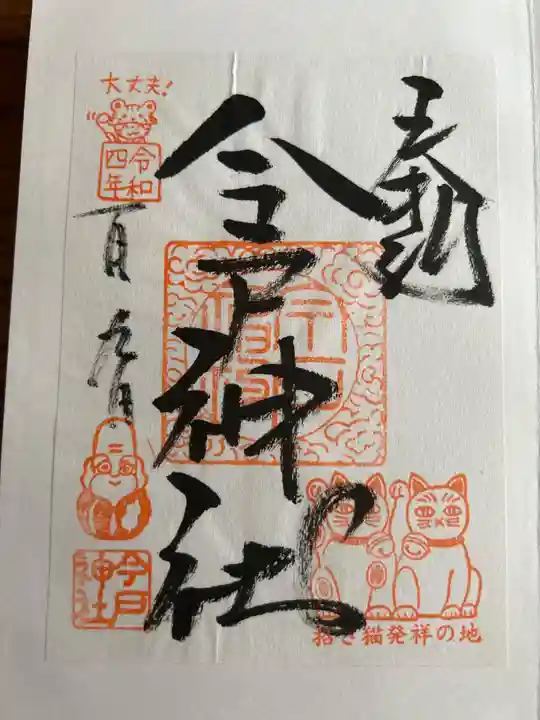 奉拝
今戸神社
招き猫発祥の地
大丈夫!
令和
四年
一月
九日
今戸
神社